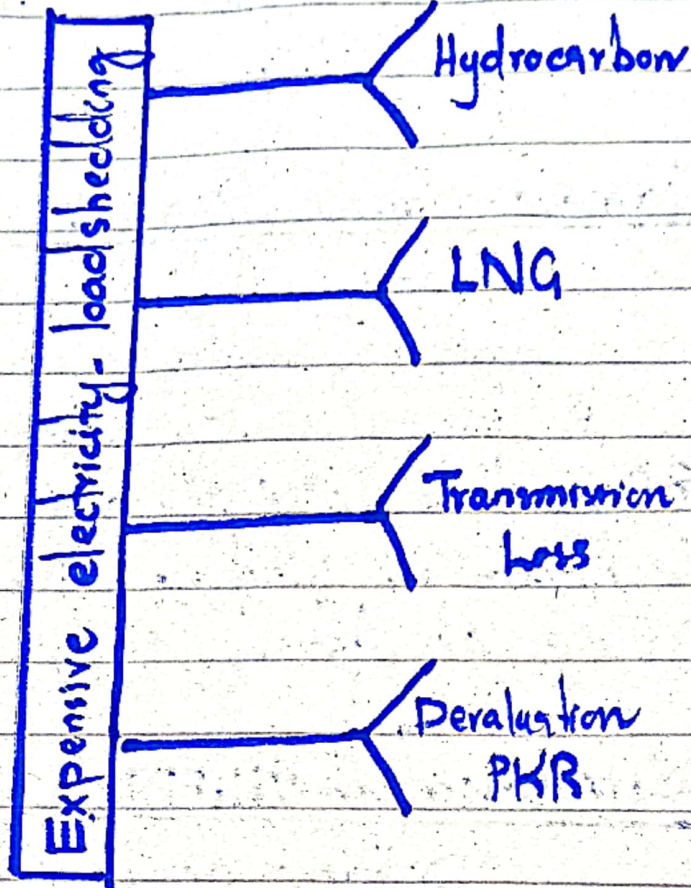 Expensive electricity - loadshedding
Hydrocarbon
LNG
Transmission
Loss
Devaluation
PKR